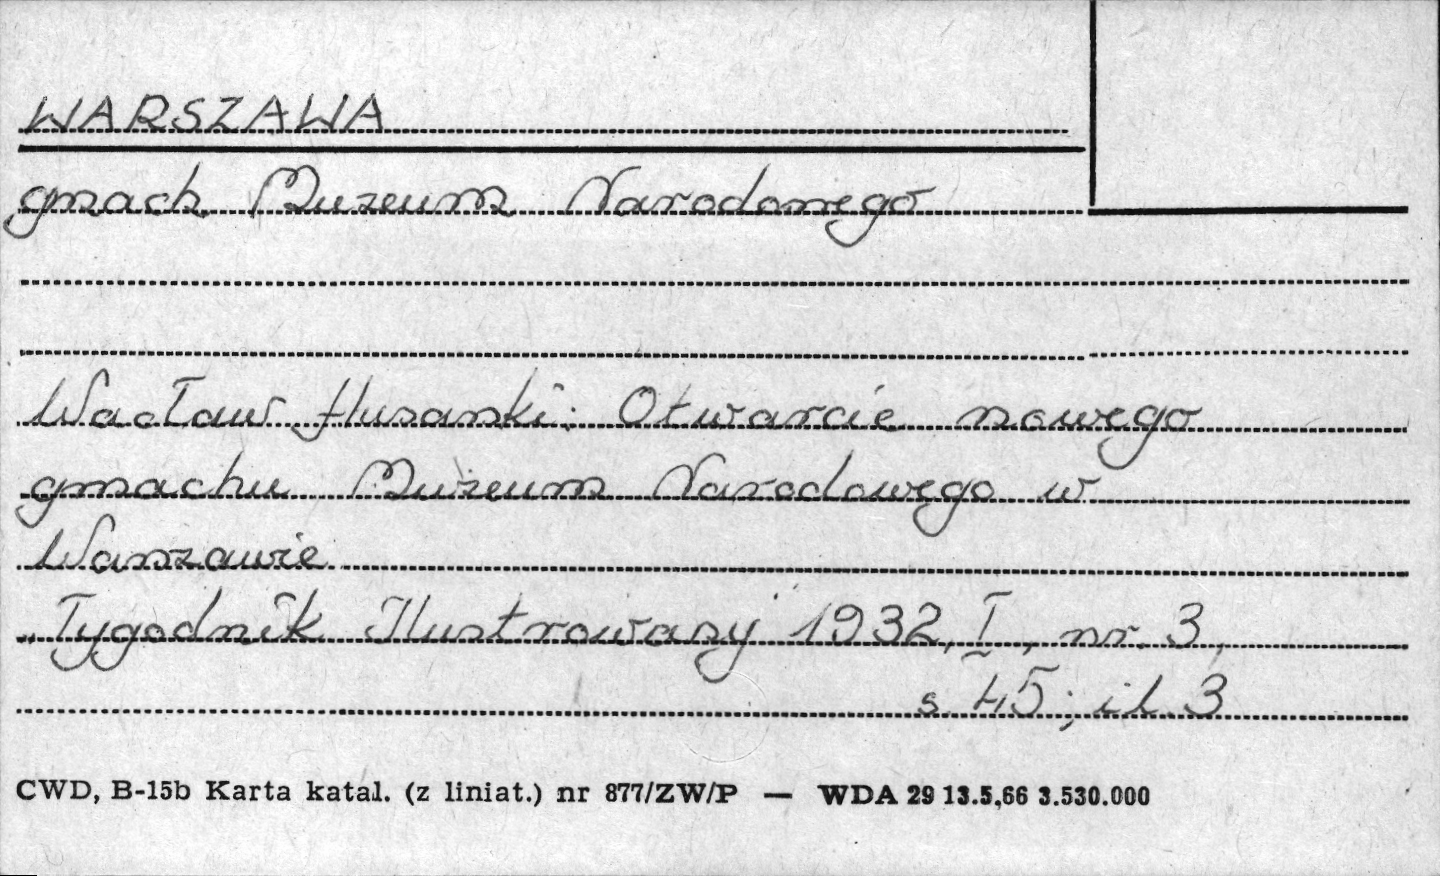 WARSZAWA
gmach Muzeum Narodowego
Wacław Husarski: Otwarcie nowego
gmachu Muzeum Narodowego w
Warszawie
„Tygodnik Ilustrowany" 1932, I, nr. 3,
s. 45; il. 3
CWD, B-15b Karta katal. (z liniat.) nr 877/ZW/P — WDA 29 13.5,66 3.530.000